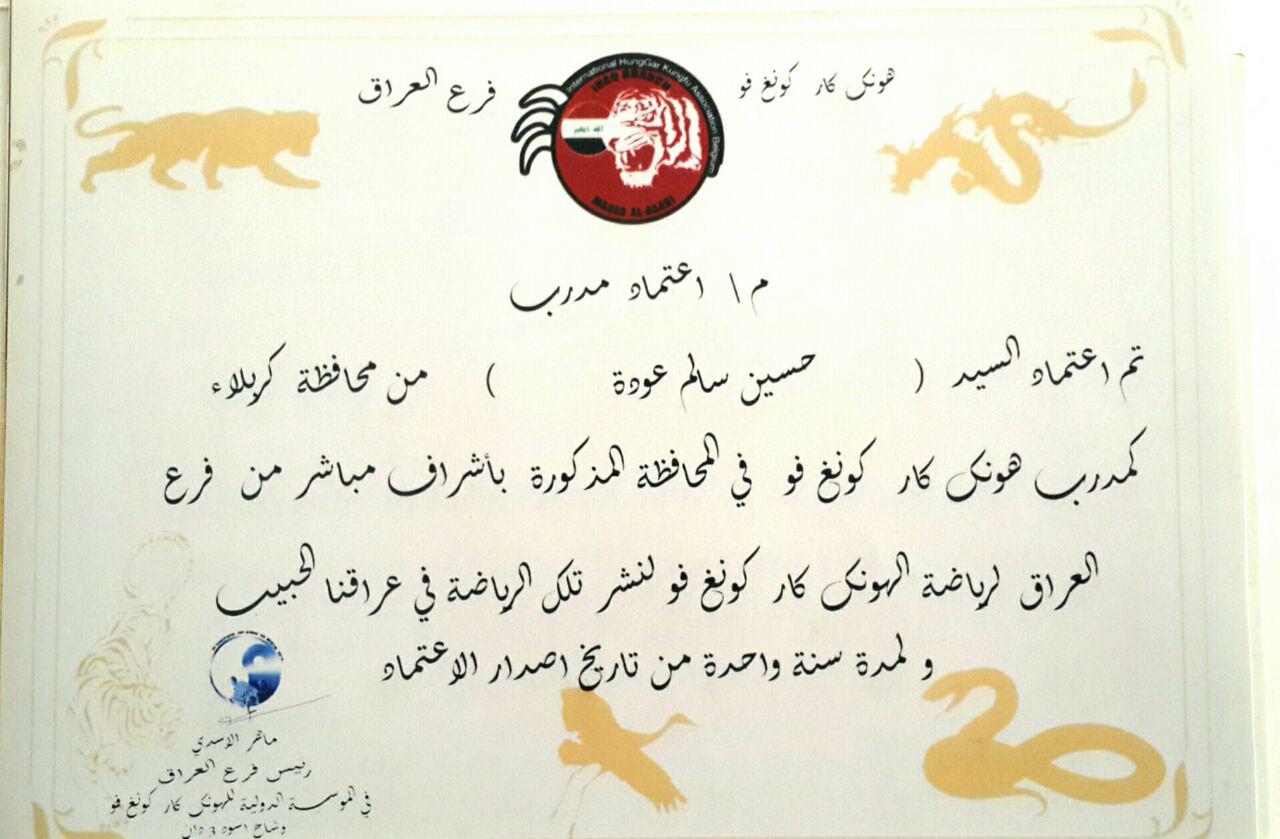 هونك كار كونغ فو
International HungGar Kungfu Association Belgium
IRAQ BRANCH
الله اكبر
MAHER AL-ASADI
فرع العراق
م \ اعتماد مدرب
تم اعتماد السيد ( حسين سالم عودة ) من محافظة كربلاء
كمدرب هونك كار كونغ فو في المحافظة المذكورة بأشراف مباشر من فرع
العراق لرياضة الهونك كار كونغ فو لنشر تلك الرياضة في عراقنا الحبيب
و لمدة سنة واحدة من تاريخ اصدار الاعتماد
ماهر الاسدي
رئيس فرع العراق
في الموسسة الدولية للهونك كار كونغ فو
وشاح اسود 3 دان